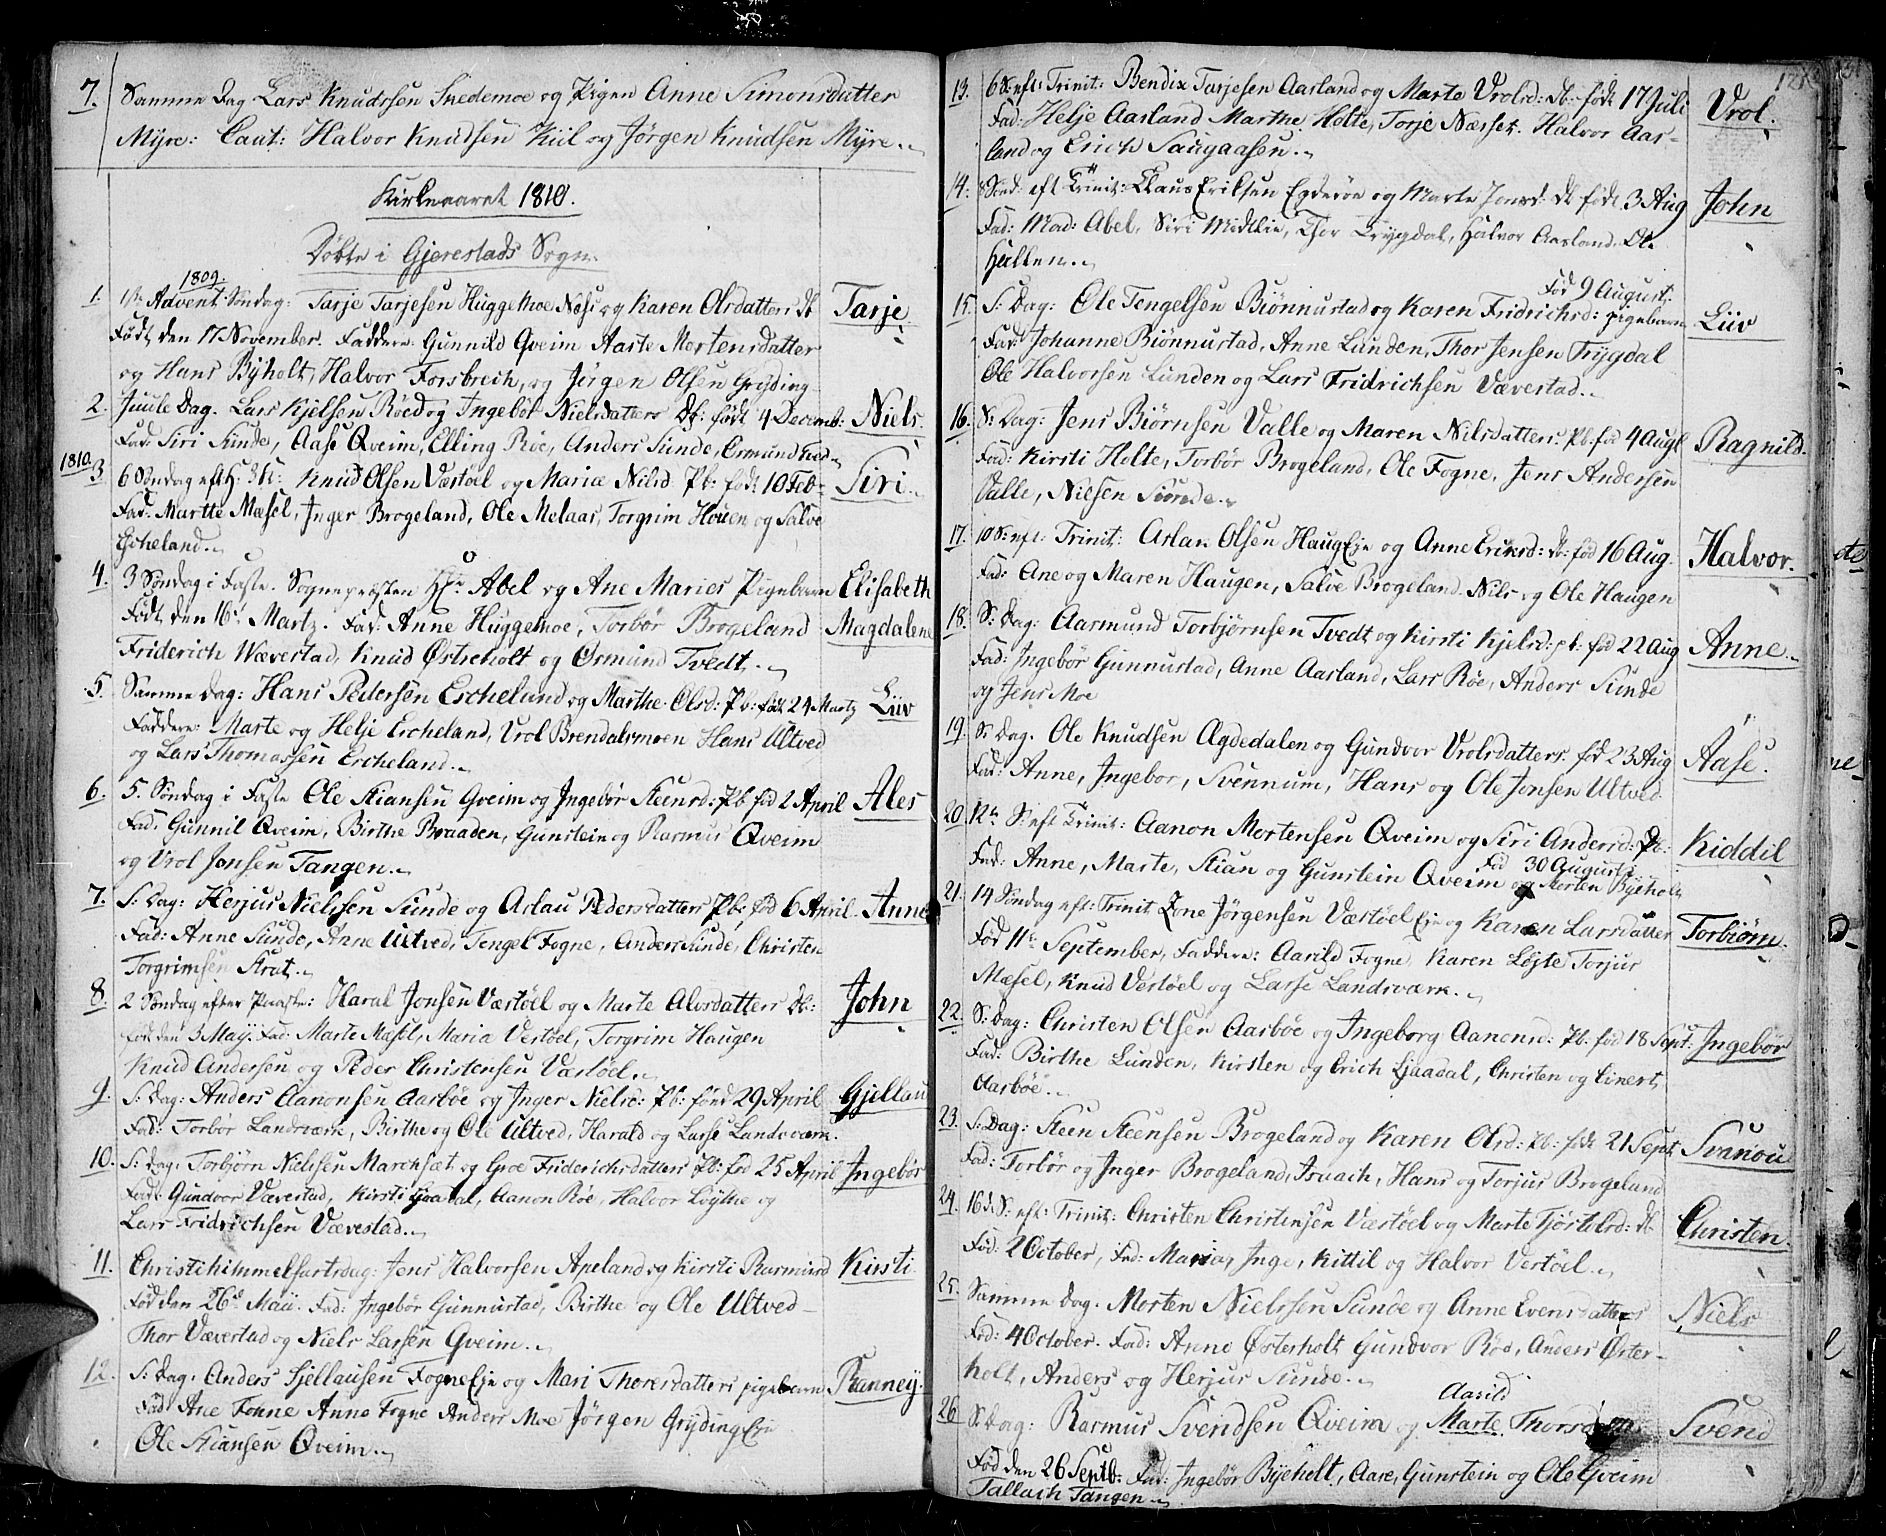 7. Samme Dag Lars Knudssen Snedemoe og Pigen Anne Simonsdatter
Myre: Caut: Halvor Knudsen Kiil og Jørgen Knudsen Myre.
Kirkeaaret 1810.
Døbte i Gjerestads Sogn.
1809.
1. 1ste Advent Søndag: Tarje Tarjesen Huggemoe Næss og Karen Olsdatters Db Tarje
Født den 17 November. Faddere: Gunnild Qveim Aaste Mortensdatter
og Hans Byholt, Halvor Forsbrech, og Jørgen Olsen Gryding
2. Juule Dag. Lars Kjelsen Røed og Ingebør Nielsdatters Db: født 4 Decemb: Niels.
Fad: Siri Sunde, Aase Qveim, Elling Røe, Anders Sunde, Ermund Røed
1810. 3 6 Søndag eft H: 3 K: Knud Olsen Væstøel og Mariæ Nilsd: Pb: født 10 Feb: Siri.
Fad: Martte Mæsel, Inger Brogeland, Ole Melaas, Torgrim Houen og Salve
Escheland.
4. 3 Søndag i Faste. Sognepræsten Hr: Abel og Ane Maries Pigebarn Elisabeth
Født den 16 Martz. Fad: Anne Huggemoe, Torbør Brogeland Magdalene
Friderich Wævestad, Knud Østreholt og Osmund Tvedt.
5. Samme Dag: Hans Pedersen Escheland og Marthe Olsd: Pb: født 24 Martz Liiv
Faddere: Marte og Helje Escheland, Vrol Brendalsmoen Hans Ultved
og Lars Thomassen Escheland.
6. 5. Søndag i Faste Ole Stiansen Qveim og Ingebør Steensd: Pb. fød 2 April Ales
Fad: Gunnil Qveim, Birthe Braaden, Gunstein og Rasmus Qveim
og Vrol Jonsen Tangen.
7. S: Dag: Herjus Nielssen Sunde og Aslau Pedersdatters Pb: fød 6 April. Anne
Fad: Anne Sunde, Anne Ultved, Tengel Fogne, Anders Sunde, Christen
Torgrimsen Strat.
8. 2 Søndag efter Paaske: Haral Jonsen Væstøel og Marte Alvsdatters Db: John
fød den 3 May. Fad: Marte Mæsel, Maria Vestøel, Torgrim Haugen
Knud Andersen og Peder Christensen Væstøel.
9. S: Dag: Anders Aanonsen Aasbøe og Inger Nielsd: Pb: fød 29 April Gjellau
Fad: Torbør Landsværk, Birthe og Ole Ultved, Harald og Lasse Landsværk.
10. S: Dag: Torbjørn Nielssen Marchsæt og Groe Friderichsdatters Pb: fød 25 April Ingebør
Fad: Gundvor Vævestad, Kirsti Ljaadal, Aanon Røe, Halvor Løythe og
Lars Fridrichsen Vævestad.
11. Christihimmelfartsdag: Jens Halvorsen Apeland og Kirsti Rasmusd Kirsti
Fød den 26 Maii. Fad: Ingebør Gunnustad, Birthe og Ole Ultved
Thor Vævestad og Niels Larsen Qveim.
12. S: Dag. Anders Gjellausen Fogne Eje og Mari Thoresdatters pigebarn Ranney.
Fad: Ane Fonne Anne Fogne Anders Moe Jørgen Gryding Eje
Ole Stiansen Qveim.
13. 6 S: eft: Trinit: Bendix Tarjesen Aasland og Marte Vrolsd: Db: født 17 Juli Vrol.
Fad: Helje Aasland Marthe Holte, Torje Næsset. Halvor Aas-
land og Erich Saugaasen.
14. 8 Sønd: eft Trinit: Claus Eriksen Egderøe og Marte Jonsd: Db født 3 Aug John
Fad: Mad: Abel. Siri Midtlie, Thor Trygdal, Halvor Aasland. Ole
Hallen.
Fød 9 August:
15. S: Dag: Ole Tengelsen Biønnustad og Karen Fridrichsd: pigebarn Liiv
Fad: Johanne Biønnustad, Anne Lunden, Thor Jensen Trygdal
Ole Halvorsen Lunden og Lars Fridrichsen Vævestad.
16. S: Dag: Jens Biørnsen Valle og Maren Nilsdatters: Pb: fød 4 Aug Ragnild.
Fad: Kirsti Holte, Torbør Brogeland, Ole Fogne, Jens Andersen
Valle, Nielsen Sunde.
17. 10 S: eft: Trinit: Aslak Olsen Haug Eje og Anne Ericsd: Db: fød 16 Aug. Halvor.
Fad: Ane og Maren Haugen, Salve Brogeland. Nils og Ole Haugen
18. S: Dag: Aasmund Torbjørnsen Tvedt og Kirsti Kjelsd: pb: fød 22 Aug Anne.
Fad: Ingebør Gunnustad, Anne Aasland, Lars Røe, Anders Sunde
og Jens Moe
19. S: Dag. Ole Knudsen Agdedalen og Gundvor Vrolsdatters. fød 23 Aug Aase.
Fad: Anne, Ingebor, Svennum, Hans og Ole Jonsen Ultved
20. 12te S: eft Trinit: Aanon Mortensen Qveim og Siri Andersd: Db: Kiddil
Fød 30 August:
Fad: Anne, Marte, Stian og Gunstein Qveim og Morten Byeholt
21. 14 Søndag eft: Trinit Zone Jørgensen Væstøel Eje og Karen Larsdatter Torbiørn.
Fød 11te September, Faddere: Aarild Fogne, Karen Løjte Torjus
Mæsel, Knud Vestøel og Lasse Landsværk.
22. S: Dag: Christen Olsen Aasbøe og Ingeborg Aanonsd: Pb: fød 18 Sept: Ingebør
Fad: Birthe Lunden, Kirsten og Erich Ljaadal, Christen og Einert
Aasbøe.
23. S: Dag: Steen Steensen Brogeland og Karen Olsd: Pb: født 21 Sept: Svanou
Fad: Torbør og Inger Brogeland, Isaach, Hans og Torjus Brogeland
24. 16de S: eft: Trinit: Christen Christensen Væstøel og Marte Tjøstelsd: Db Christen.
Fød: 2 October, Fad: Maria, Inge, Kittil og Halvor Vestøel.
25. Samme Dag. Morten Nielssen Sunde og Anne Evensdatters Niels
Fød: 4 October. Fad: Anne Østerholt Gundvor Røe, Anders Øster-
holt, Anders og Herjus Sunde.
Aasild
26. S: Dag: Rasmus Svendsen Qveim og Marte Thorsdatters Svend
Fød den 26 Septb. Fad: Ingebør Byeholt, Aase, Gunstein og Ole Qveim
Tallach Tangen.